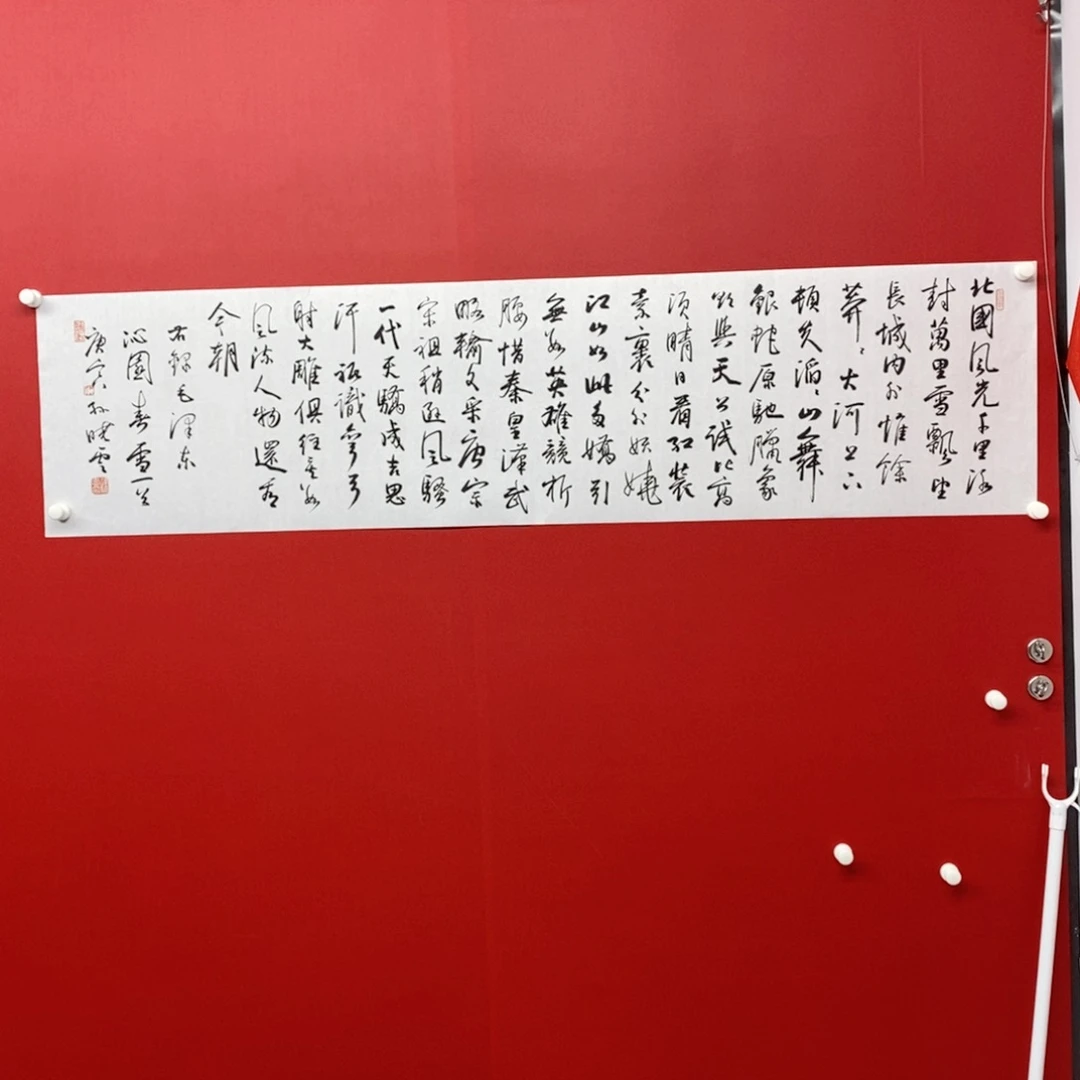 北國風光千里冰
封萬里雪飄望
長城內外惟餘
莽々大河上下
頓失滔々山舞
銀蛇原馳臘象
欲與天公試比高
須晴日看紅裝
素裹分外妖嬈
江山如此多嬌引
無數英雄競折
腰惜秦皇漢武
略輸文采唐宗
宋祖稍遜風騷
一代天驕成吉思
汗祇識彎弓
射大雕俱往矣數
風流人物還看
今朝
右錄毛澤東
沁園春雪一首
庚寅孫曉雲